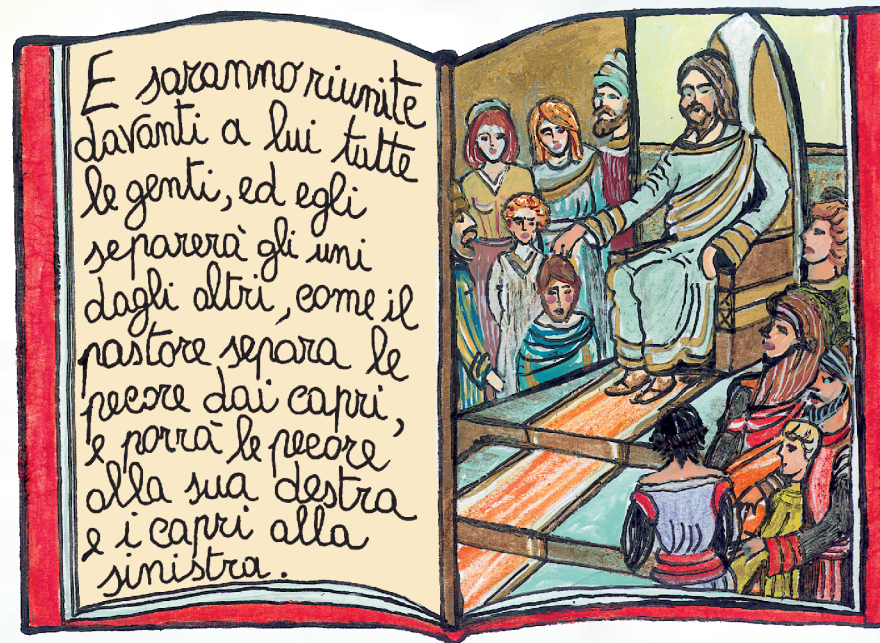 E saranno riunite
davanti a lui tutte
le genti, ed egli
separerà gli uni
dagli altri, come il
pastore separa le
pecore dai capri,
e porrà le pecore
alla sua destra
e i capri alla
sinistra.